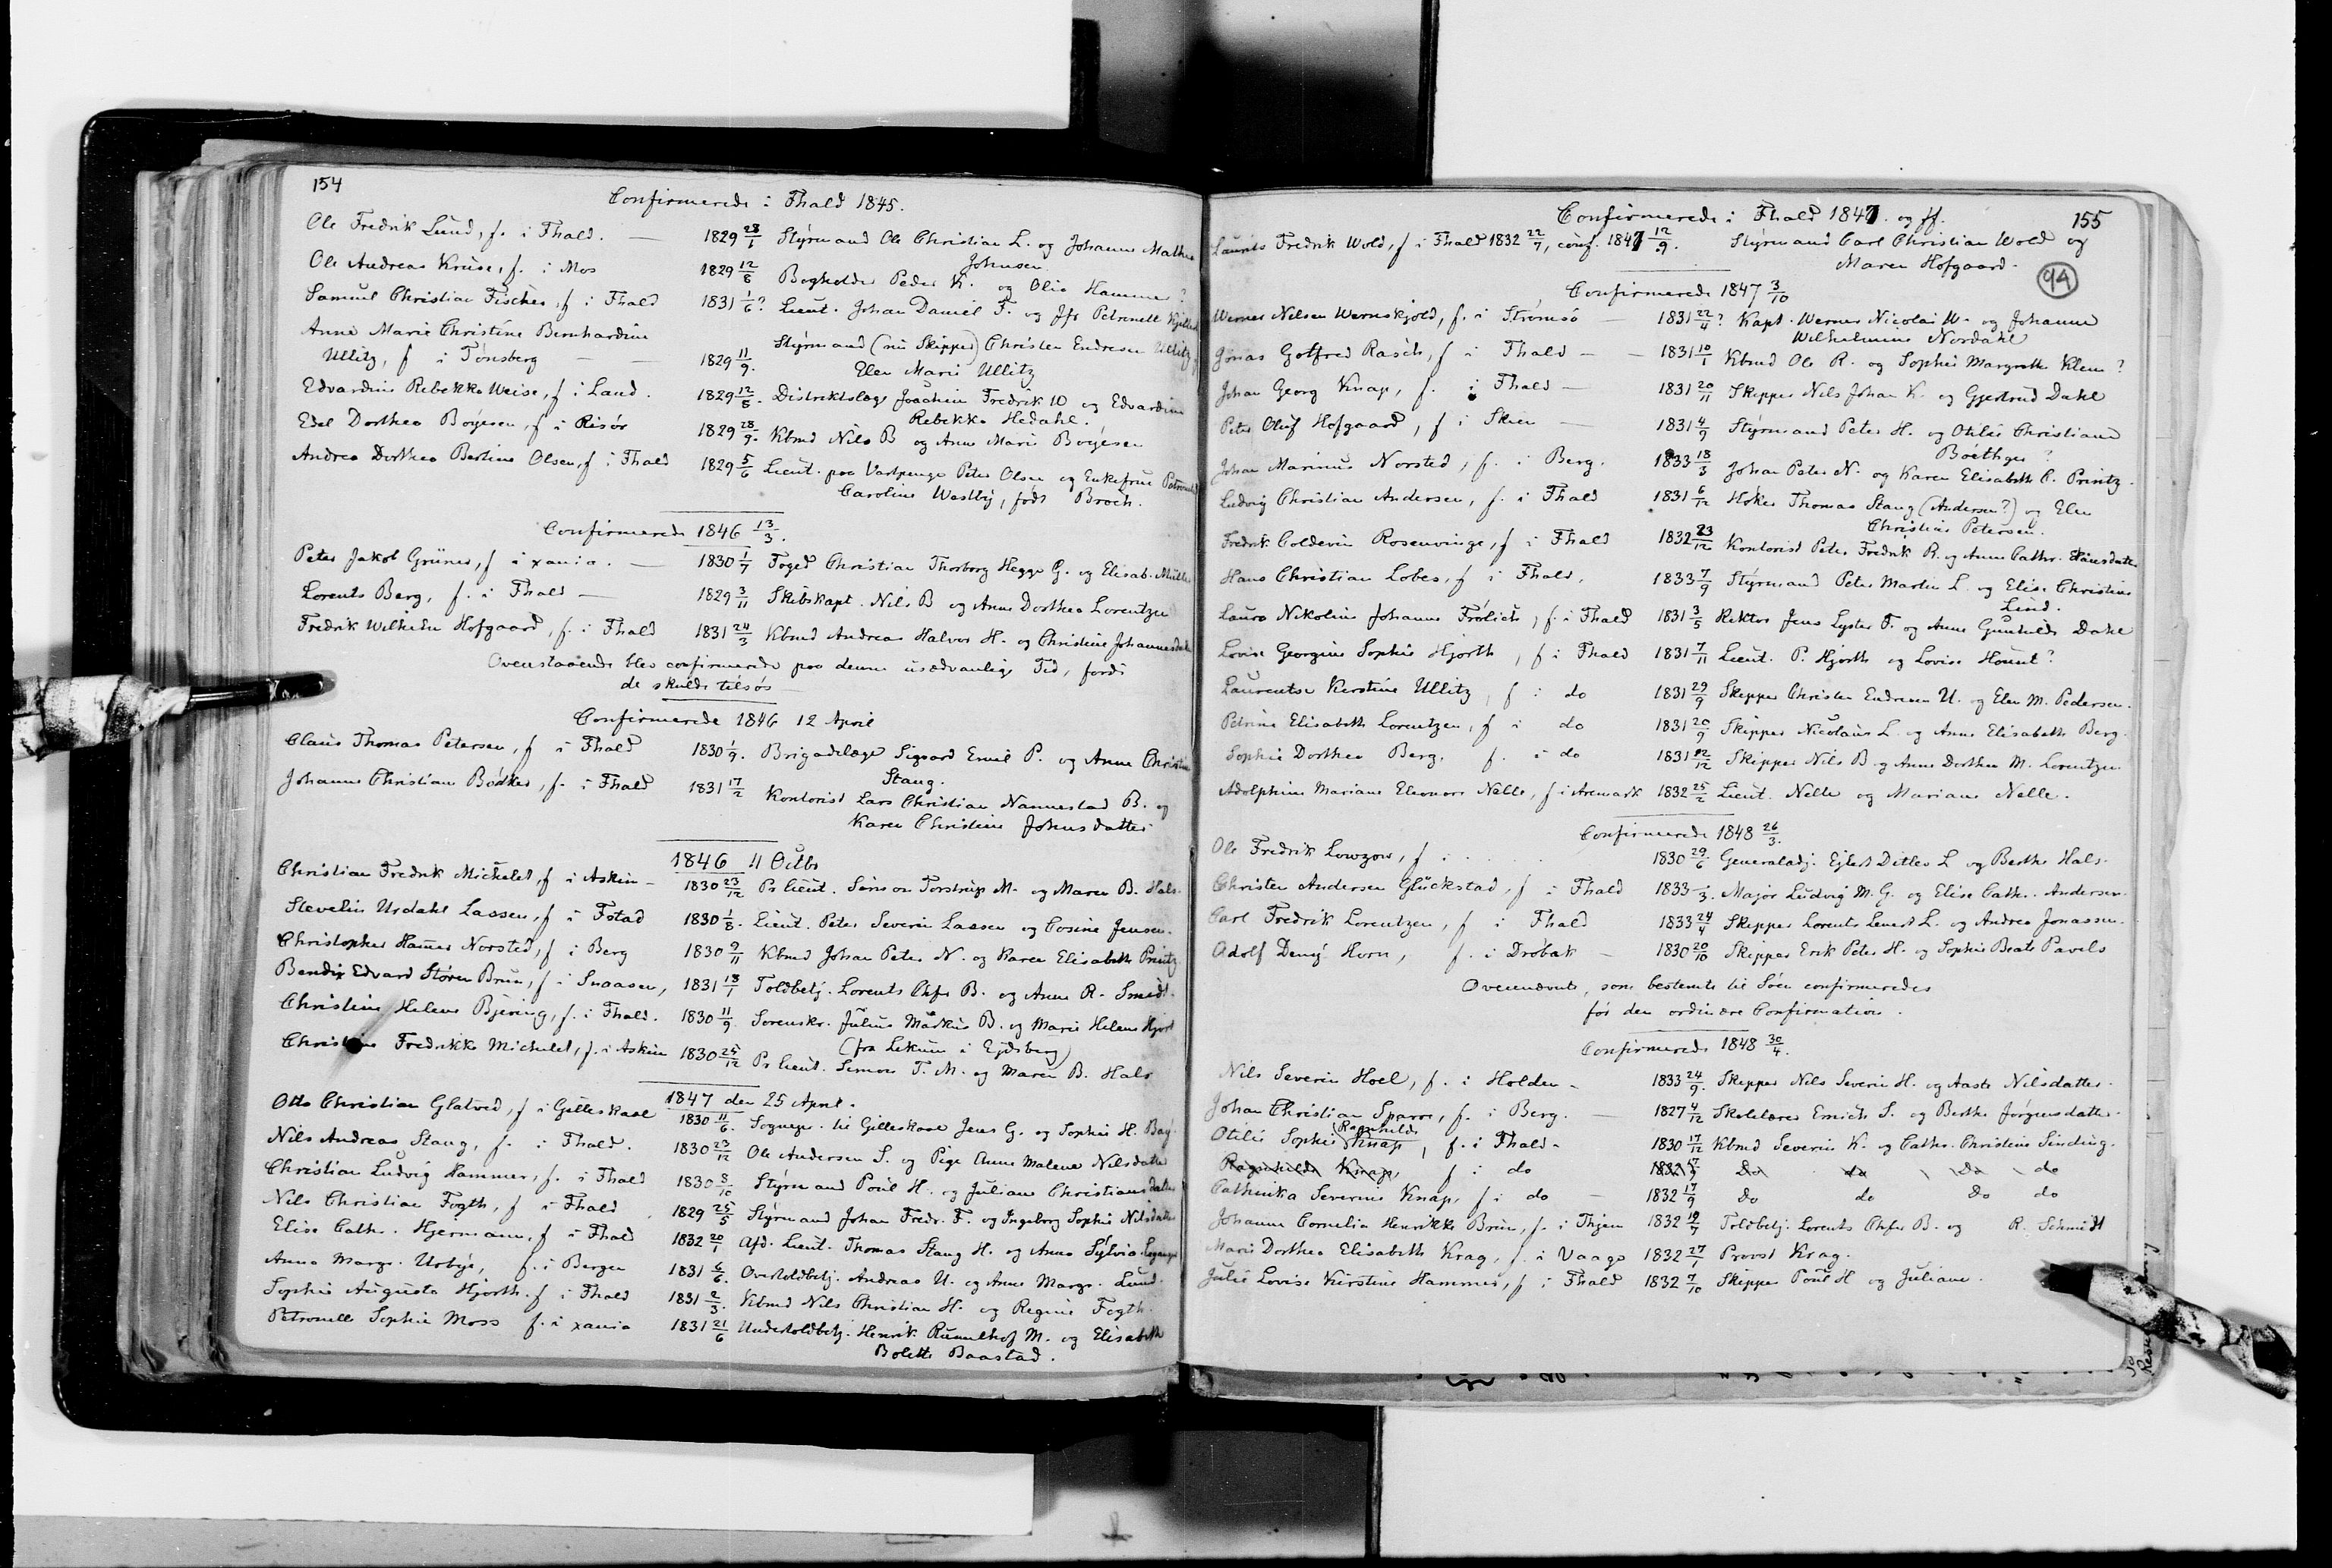 154
Confirmerede i Fhald 1845.
Ole Fredrik Lund, f. i Fhald. — 1829 28/1 Styrmand Ole Christian L. og Johanne Mathea
Johnsen.
Ole Andreas Kruse, f. i Mos 1829 12/8 Bogholder Peder K. og Olia Hammer?
Samuel Christian Fischer, f i Fhald 1831 1/6? Lieut. Johan Daniel F. og Jfr Petronelle
Anne Marie Christine Bernhardine
Ullitz, f i Tønsberg — — 1829 11/9. Styrmand (nu Skipper) Christen Endresen Ullitz,
Elen Marie Ullitz
Edvardine Rebekka Weise, f. i Land. 1829 12/8. Distriktslæge Joachim Fredrik W og Edvardine
Rebekka Hedahl.
Edel Dorthea Boyesen, f i Risør 1829 28/9. Kbmd Nils B og Anne Marie Boyesen
Andrea Dorthea Bertine Olsen, f i Fhald 1829 5/6 Lieut. paa Vartpenge Peter Olsen og Enkefrue
Caroline Westby, født Broch.
Confirmerede 1846 13/3.
Peter Jakob Grüner, f i xania. — 1830 1/7 Foged Christian Thorborg Hegge G. og Elisab. Müller
Lorents Berg, f. i Fhald — 1829 3/11 Skibskapt. Nils B og Anne Dorthea Lorentzen
Fredrik Wilhelm Hofgaard, f. i Fhald 1831 24/3 Kbmd Andreas Halvor H. og Christine Johannesdatter
Ovenstaaende blev confirmerede paa denne usædvanlige Tid, fordi
de skulde tilsøs
Confirmerede 1846 12 April
Claus Thomas Petersen, f i Fhald 1830 1/9. Brigadelæge Sigvard Emil P. og Anne Christine
Stang.
Johanne Christiane Bødker, f. i Fhald 1831 17/2 Kontorist Lars Christian Nannestad B. og
Karen Christine Johnsdatter
1846 11 Octbr
Christian Fredrik Michelet, f i Askim — 1830 23/12 Pr lieut. Simon Torstrup M. og Maren B. Hals.
Stevelin Urdahl Lassen, f i Fstad 1830 1/8. Lieut. Peter Severin Lassen og Cosine Jensen.
Christopher Hamer Norsted, f i Berg 1830 9/11 Kbmd Johan Peter N. og Karen Elisabeth Printz
Bendix Edvard Støren Brun, f. i Snaasen, 1831 18/1 Toldbetj. Lorents Chfr B. og Anne R. Smidt.
Christine Helene Bjering, f. i Fhald. 1830 11/9. Sorenskr. Julius Markus B. og Marie Helene Hjort
(fra Lekum i Ejdsberg)
Christine Fredrikke Michelet, f. i Askim 1830 25/12 Pr lieut. Simon T. M. og Maren B. Hals
1847 den 25 April.
Otto Christian Glatved, f i Gilleskaal 1830 11/6. Sognepr. til Gilleskaal Jens G. og Sophie H. Bay.
Nils Andreas Stang, f. i Fhald. 1830 23/12 Ole Andersen S. og Pige Anne Malene Nilsdatter
Christian Ludvig Hammer, f. i Fhald 1830 8/10 Styrmand Poul H. og Juliane Christiansdatter
Nils Christian Fogth, f i Fhald 1829 25/5 Styrmand Johan Fredr. F. og Ingeborg Sophie Nilsdatter
Elise Cathr. Hjermann, f i Fhald 1832 20/1 Afd. Lieut. Thomas Stang H. og Anna Sylvia
Anna Margr. Urbye, f. i Bergen 1831 6/6. Overtoldbetj. Andreas U. og Anne Margr. Lund.
Sophie Augusta Hjorth. f i Fhald 1831 2/3. Kbmd Nils Christian H. og Regine Fogth.
Petronelle Sophie Moss f. i xania 1831 21/6 Undertoldbetj. Henrik Rumelhof M. og Elisabeth
Bolette Baastad.
155
Confirmerede i Fhald 1847. og ff.
Laurits Fredrik Wold, f i Fhald 1832 22/7, conf. 1847 12/9. Styrmand Carl Christian Wold og
Maren Hofgaard.
94
Confirmerede 1847 3/10
Werner Nilsen Wernskjold, f. i Strømsø — 1831 22/4? Kapt. Werner Nicolai W. og Johanne
Wilhelmine Nordahl
Jonas Gotfred Rasch, f i Fhald — — 1831 10/1 Kbmd Ole R. og Sophie Margrethe Klem?
Johan Georg Knap, f. i Fhald — 1831 20/11 Skipper Nils Johan K. og Gjertrud Dahl
Peter Oluf Hofgaard, f i Skien — 1831 4/9 Styrmand Peter H. og Otilie Christiane
Boethger?
Johan Marinus Norsted, f. i Berg. 1833 18/3 Johan Peter N. og Karen Elisabeth C. Printz.
Ludvig Christian Andersen, f. i Fhald 1831 6/12 Høker Thomas Stang (Andersen?) og Elen
Christine Petersen.
Fredrik Coldevin Rosenvinge, f i Fhald 1832 23/12 Kontorist Peter Fredrik R. og Anne Cathr. Hansdatter
Hans Christian Lobes, f i Fhald, 1833 7/9 Styrmand Peter Martin L. og Elise Christine
Lind.
Laura Nikoline Johanne Frølich, f. i Fhald 1831 3/5 Rektor Jens Lyster F. og Anne Gunhilde Dahl
Lovise Georgine Sophie Hjorth, f i Fhald 1831 7/11 Lieut. P. Hjorth og Lovise Hount?
Laurentse Kirstine Ullitz, f i do 1831 29/9 Skipper Christen Endresen U. og Elen M. Pedersen.
Petrine Elisabeth Lorentzen, f i do 1831 20/9 Skipper Nicolaus L. og Anne Elisabeth Berg.
Sophie Dorthea Berg, f. i do 1831 12/12 Skipper Nils B og Anne Dorthea M. Lorentzen.
Adolphine Mariane Eleonore Nelle, f i Aremark 1832 25/2 Lieut. Nelle og Mariane Nelle.
Confirmerede 1848 26/3.
Ole Fredrik Lowzow, f i . . . . 1830 29/6 Generaladj. Ejlert Ditlev L og Berthe Hals.
Christen Andersen Glückstad, f i Fhald 1833 -/3. Major Ludvig M. G. og Elise Cathr. Andersen.
Carl Fredrik Lorentzen, f i Fhald 1833 24/4 Skipper Lorents Lenert L. og Andrea Jonassen.
Adolf Deny Horn, f. i Drøbak — 1830 20/10 Skipper Erik Peter H. og Sophie Beate Pavels
Ovennævnte, som bestemte til Søen confirmeredes
før den ordinære Confirmation.
Confirmerede 1848 30/4.
Nils Severin Hoel, f. i Holden — 1833 24/9. Skipper Nils Severin H. og Aaste Nilsdatter.
Johan Christian Sparre, f. i Berg. — 1827 4/12 Skolelærer Emich S. og Berthe Jørgensdatter.
Ragnhilde
Otilie Sophie Knap, f. i Fhald — 1830 17/12 Kbmd Severin K. og Cathr. Christine Sinding.
Ragnhilde Knap, f i do 1832 17/9 do do do do
Cathinka Severine Knap, f i do — 1832 17/9 do do do do
Johanne Cornelia Henrikke Brun, f. i Thjem 1832 19/7 Toldbetj. Lorents Chfr B. og R. Schmidt
Maris Dorthea Elisabeth Krag, f. i Vaage 1832 27/1 Provst Krag.
Julie Lovise Kirstine Hammer, f i Fhald 1832 7/10 Skipper Poul H og Juliane.